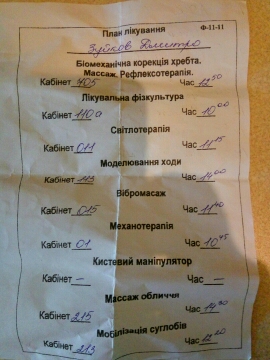 План лікування Ф-11-11
Зубков Дмитро
Біомеханічна корекція хребта.
Массаж. Рефлексотерапія.
Кабінет 405 Час 12 50
Лікувальна фізкультура
Кабінет 110а Час 10 00
Світлотерапія
Кабінет 011 Час 11 15
Моделювання ходи
Кабінет 113 Час 14 00
Вібромасаж
Кабінет 015 Час 11 40
Механотерапія
Кабінет 01 Час 10 45
Кистевий маніпулятор
Кабінет – Час –
Массаж обличчя
Кабінет 215 Час 14 30
Мобілізація суглобів
Кабінет 213 Час 12 20